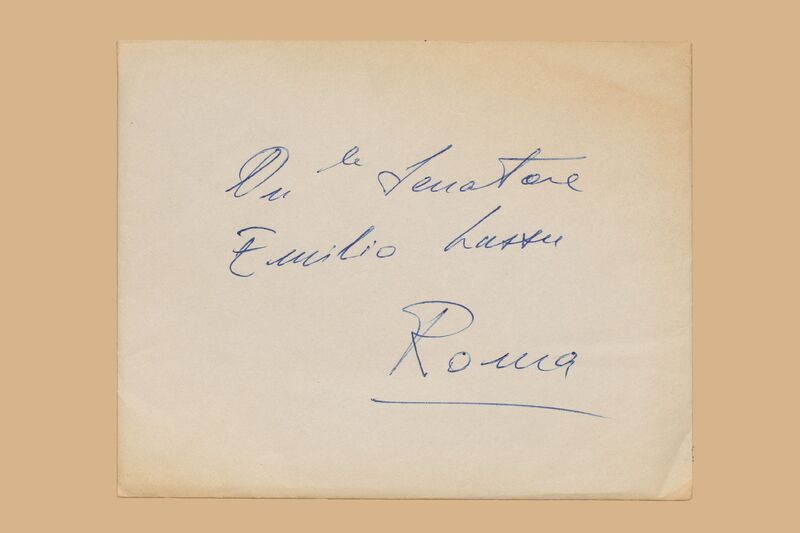 On le Senatore
Emilio Lussu
Roma